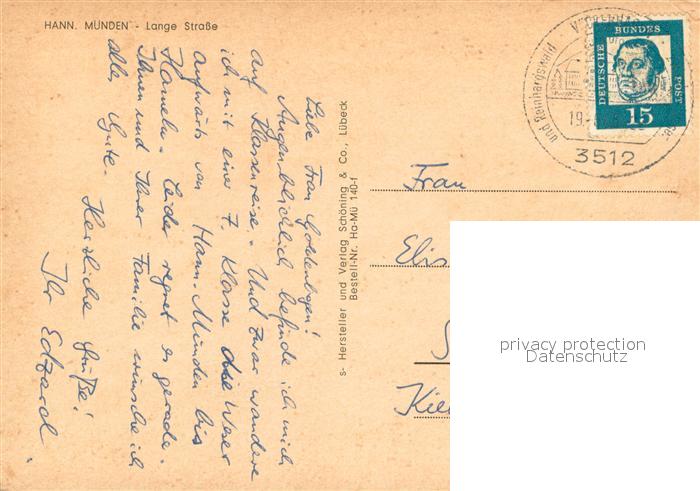 HANN. MÜNDEN - Lange Straße
Liebe Frau Goldenbogen!
Augenblicklich befinde ich mich
auf Klassenreise. Und zwar wandere
ich mit einer 7. Klasse die Weser
aufwärts von Hann.-Münden bis
Hameln. Leider regnet es gerade.
Ihnen und Ihrer Familie wünsche ich
alles Gute.
Herzliche Grüße!
Ihr Edzard.
s- Hersteller und Verlag Schöning & Co., Lübeck
Bestell-Nr. Ha-Mü 140-f
DEUTSCHE BUNDES POST
15
und Reinhardswald
19.
3512
Frau
Elis
Kiel
privacy protection
Datenschutz